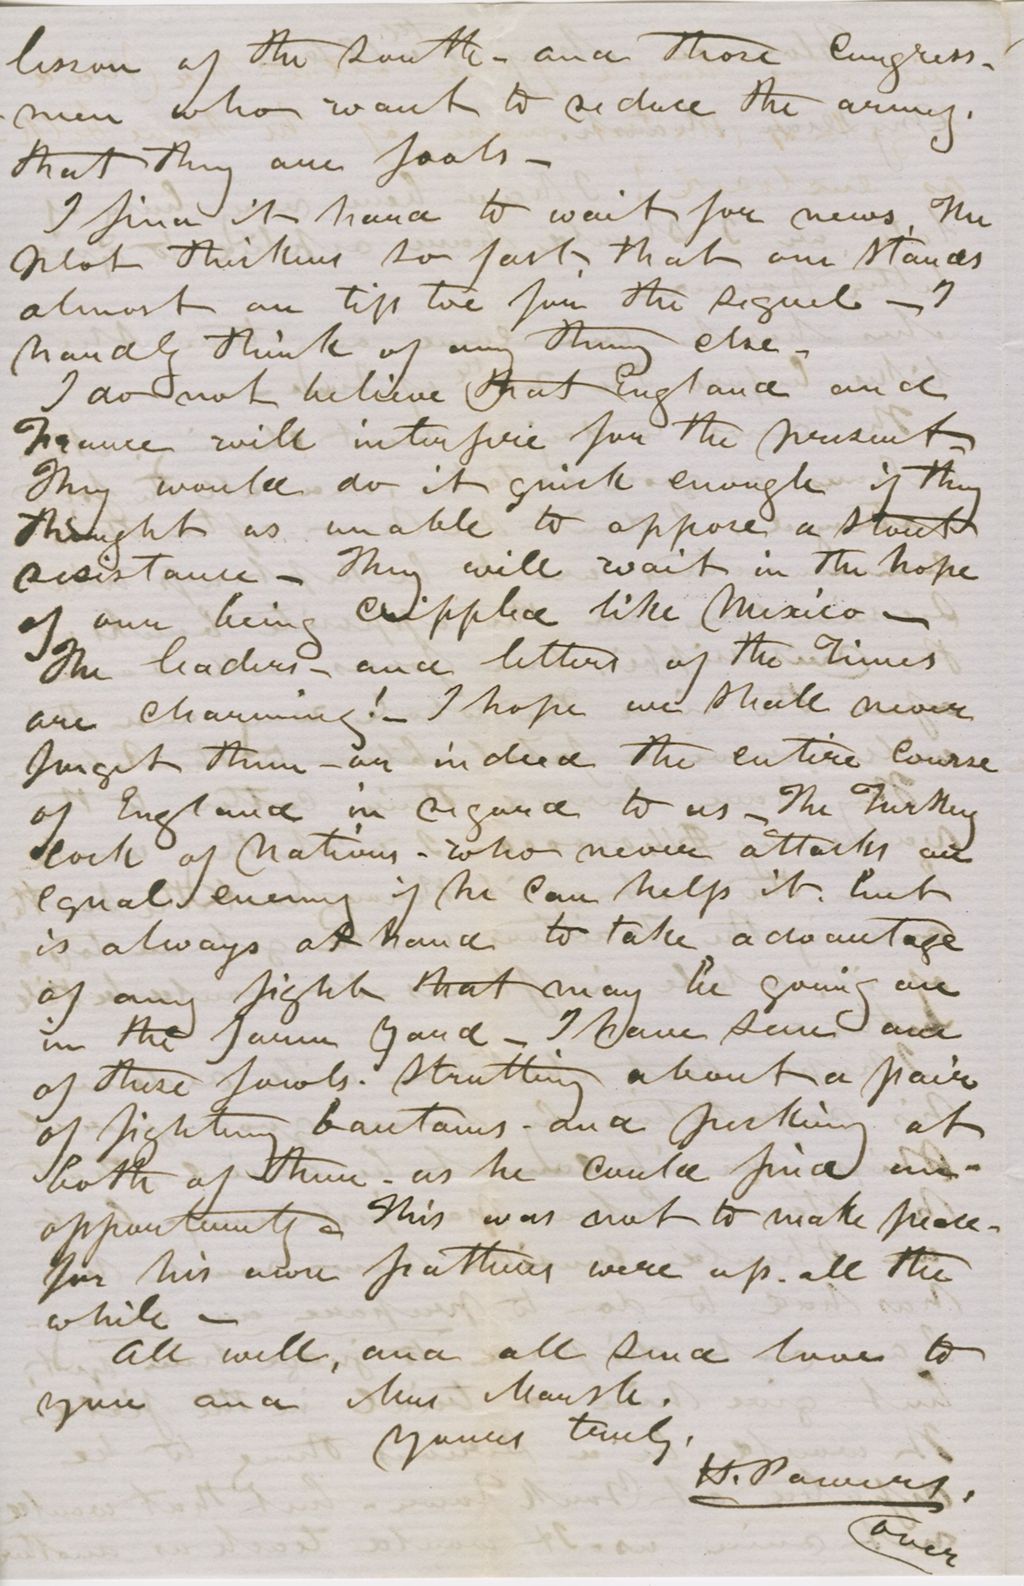 lesson of the South - and those Congress-
men who want to reduce the army.
that they are fools -
I find it hard to wait for news. The
Plot thickens so fast, that one stands
almost on tip toe for the sequel - I
hardly think of any thing else.
I do not believe that England and
France will interfere for the present -
They would do it quick enough if they
thought us unable to oppose a stout
resistance - They will wait in the hope
of our being crippled like Mexico -
The leaders - and letters of the Times
are charming! - I hope we shall never
forget them - or indeed the entire Course
of England in regard to us - The Turkey
cock of Nations - who never attacks an
equal enemy if he can help it. but
is always at hand to take advantage
of any fight that may be going on
in the Farm Yard - I have seen one
of these fowls. Strutting about a pair
of fighting bantams - and pecking at
both of them - as he could find an -
opportunity - This was not to make peace -
for his own feathers were up - all the
while -
All well, and all send love to
you and Mrs Marsh.
Yours truly,
H. Powers.
over